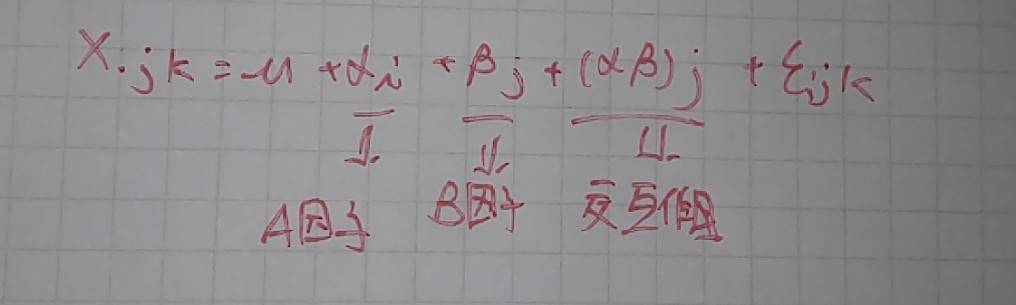 X.jk = μ + αi + βj + (αβ)j + εijk
A因子 B因子 交互作用